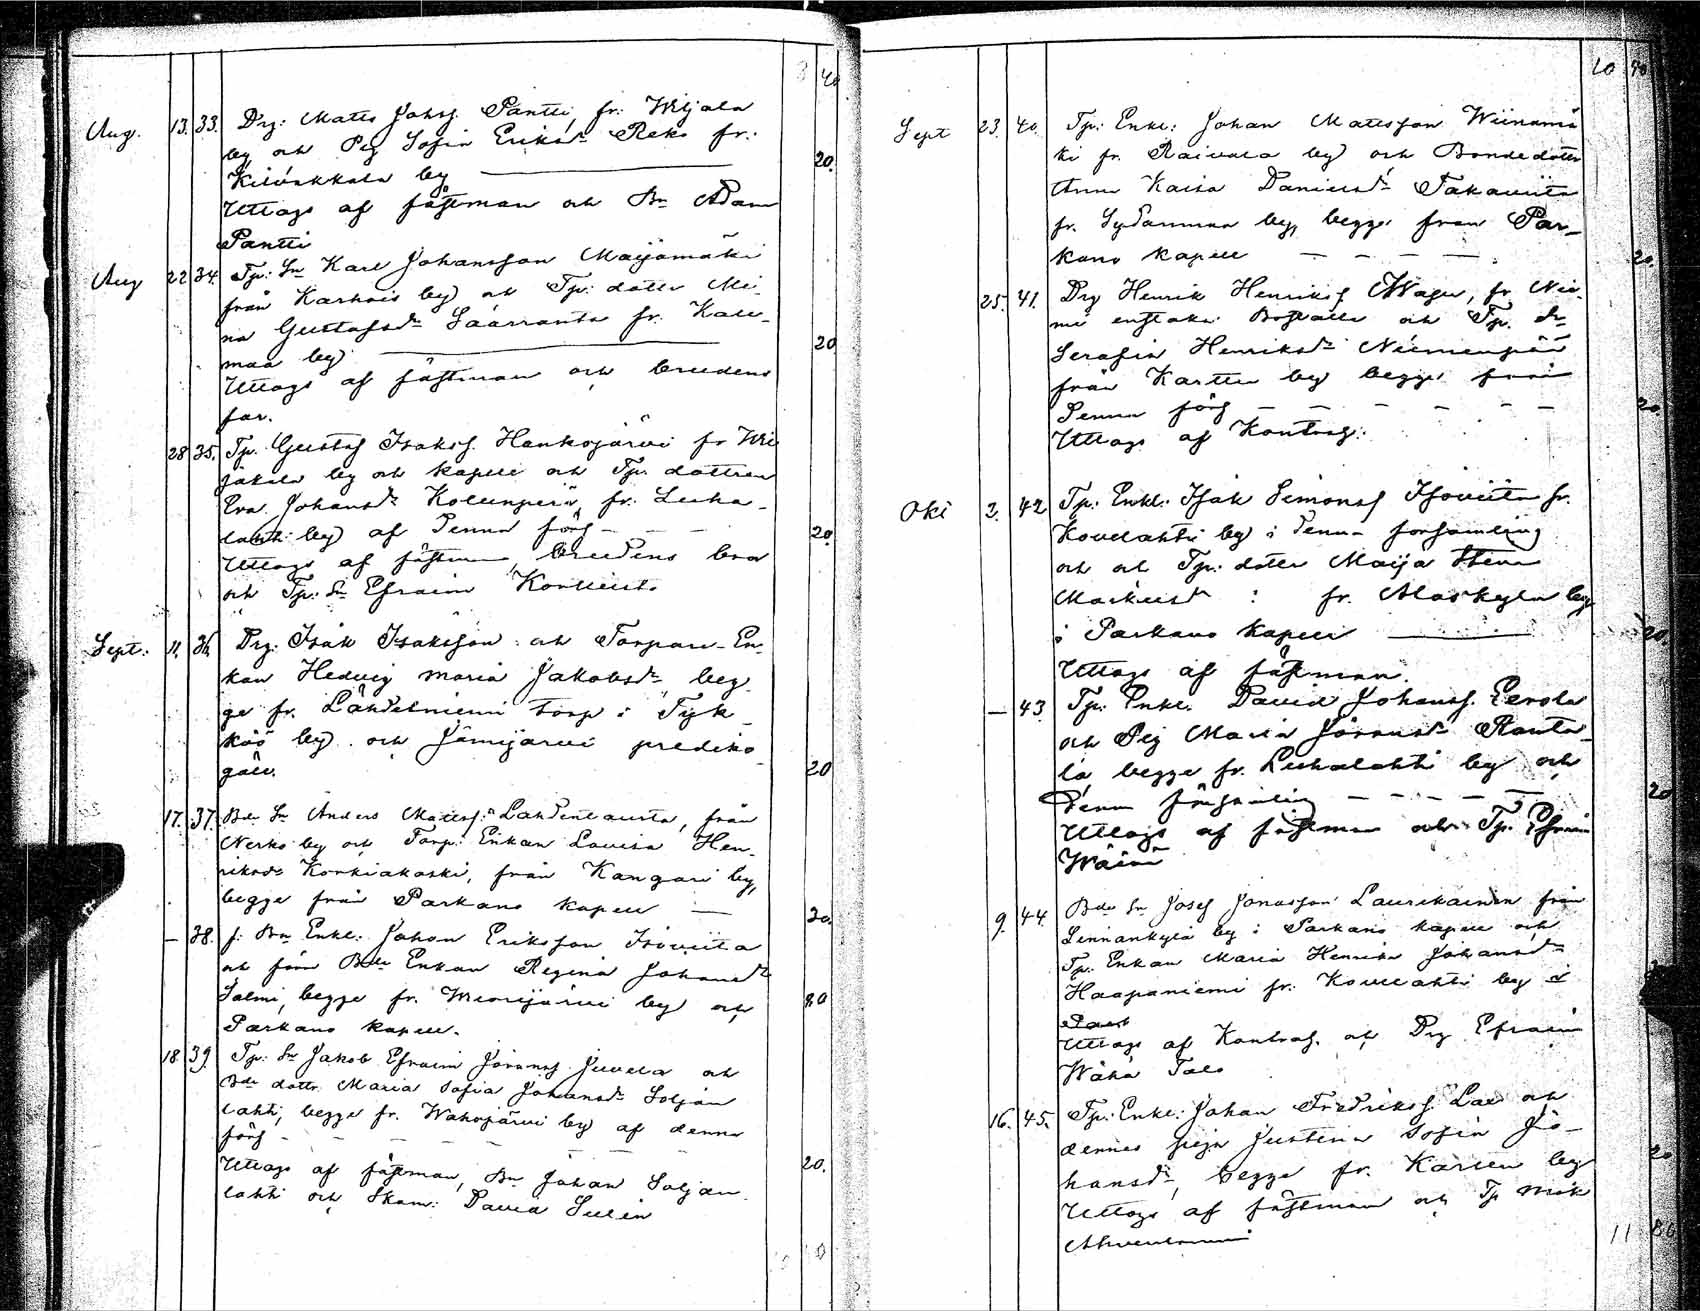 3 40
Aug. 13. 33. Drg: Matts Johsf. Pantti, fr: Wiljala
by, och Pig Sofia Eriksdr Reko fr:
Kilvakkala by 20.
Uttogs af fästman och Bn Adam
Pantti
Aug 22 34. Tp: Sn Karl Johansson Maijamäki
från Karhois by och Tp: dotter Mi-
na Gustafsdr Säärranta fr. Kall-
maa by 20
Uttogs af fästman och brudens
far.
28 35. Tp. Gustaf Isaksf. Hankojärvi fr
by och kapell och Tp. dottren
Eva Johansdr fr. Luha-
lahti by af denna förs 20.
Uttogs af fästman, brudens bror
och Tp: Sn Efraim
Sept: 11. 36. Drg. Isak Isaksson och Torpare-En-
kan Hedvig Maria Jakobsdr beg-
ge fr. Lähdelniemi torp i Tyk-
köö by och Jämijärvi prediko-
gäll. 20
17. 37. Bde Sn Anders Mattsf. Lahdentausta, från
Nerko by och Torp. Enkan Lovisa Hen-
riksdr Korkiakoski, från Kangari by,
begge från Parkano kapell 20.
— 38. f. Bn Enkl: Johan Eriksson Isoviita
och förra Bde Enkan Regina Johansdr
Salmi, begge fr. by och 80
Parkano kapell.
18 39. Tp: Sn Jakob Efraim Juvela och
Bde dottr. Maria Sofia Johansdr Soljan
lahti, begge fr. Wahojärvi by af denna
förs
Uttogs af fästman, Bn Johan Soljan 20.
lahti och Skom: David Sulin
10 40
Sept 23. 40. Tp: Enkl: Johan Mattsson Wiinamä
ki fr. Raivala by och Bondedotter
Anna Kaisa Danielsdr Takaviita
fr. Sydänmaa by, begge från Par-
kano kapell 20.
25. 41. Drg Henrik Henriksf. fr. Nie-
mi enstaka Boställe och Tp. dr
Serafia Henriksdr Niemenpää
från Karttu by begge från
Denna förs 20.
Uttogs af Kontrah:
Okt 2. 42 Tp: Enkl: Isak Simonsf Isoviita fr.
Kovelahti by i denna församling
och Tp: dotter Maija Stina
Markusdr : fr. Alaskylä by
i Parkano kapell 20.
Uttogs af fästman.
— 43 Tp: Enkl. David Johansf. Eerola
och Pig Maria Ranta-
la begge fr. Luhalahti by och
denna församling 20
Uttogs af fästman och Tp. Efraim
9. 44. Bde Sn Josef Jonasson Laurikainen från
Linnankylä by i Parkano kapell och
Tp. Enkan Maria Henrika Johansdr
Haapaniemi fr. Kovelahti by i
Uttogs af Kontrah. och Drg Efraim
Wähä Talo
16. 45. Tp: Enkl: Johan Fredriksf och
dennes piga Justina Sofia Jo-
hansdr, begge fr. by 20
Uttogs af fästman och Tp
11 80